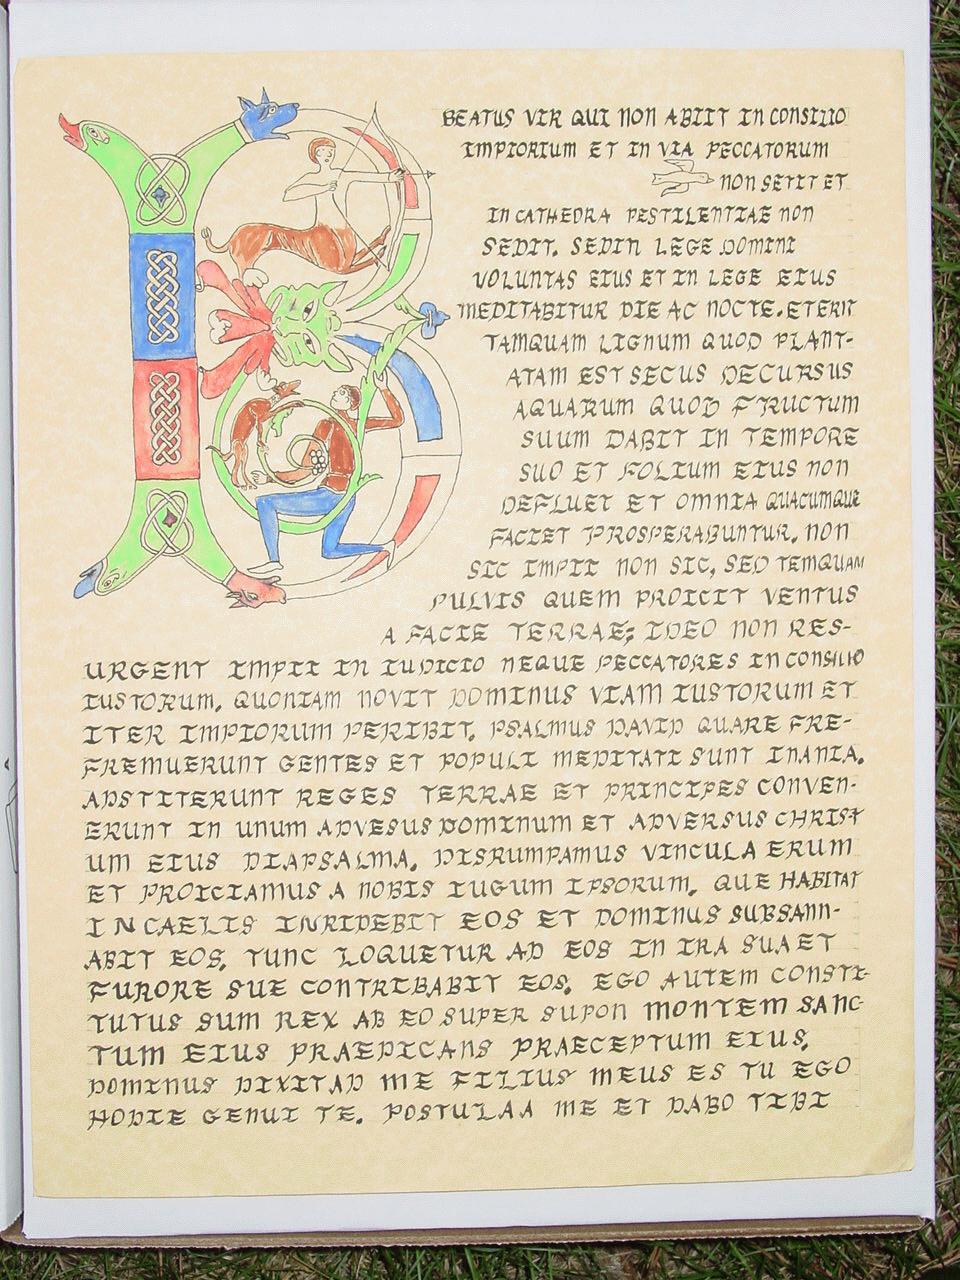 BEATUS VIR QUI NON ABIIT IN CONSILIO
IMPIORIUM ET IN VIA PECCATORUM
NON SETIT ET
IN CATHEDRA PESTILENTIAE NON
SEDIT. SEDIN LEGE DOMINI
VOLUNTAS EIUS ET IN LEGE EIUS
MEDITABITUR DIE AC NOCTE. ETERIT
TAMQUAM LIGNUM QUOD PLANT-
ATAM EST SECUS DECURSUS
AQUARUM QUOD FRUCTUM
SUUM DABIT IN TEMPORE
SUO ET FOLIUM EIUS NON
DEFLUET ET OMNIA QUACUMQUE
FACIET PROSPERABUNTUR. NON
SIC IMPII NON SIC, SED TEMQUAM
PULVIS QUEM PROICIT VENTUS
A FACIE TERRAE; IDEO NON RES-
URGENT IMPII IN IUDICIO NEQUE PECCATORES IN CONSILIO
IUSTORUM. QUONIAM NOVIT DOMINUS VIAM IUSTORUM ET
ITER IMPIORUM PERIBIT. PSALMUS DAVID QUARE FRE-
FREMUERUNT GENTES ET POPULI MEDITATI SUNT INANIA.
ADSTITERUNT REGES TERRAE ET PRINCIPES CONVEN-
ERUNT IN UNUM ADVESUS DOMINUM ET ADVERSUS CHRIST
UM EIUS DIAPSALMA. DISRUMPAMUS VINCULA ERUM
ET PROICIAMUS A NOBIS IUGUM IPSORUM. QUE HABITAT
IN CAELIS INRIDEBIT EOS ET DOMINUS SUBSANN-
ABIT EOS. TUNC LOQUETUR AD EOS IN IRA SUA ET
FURORE SUE CONTRIBABIT EOS. EGO AUTEM CONSTI-
TUTUS SUM REX AB EO SUPER SUPON MONTEM SANC-
TUM EIUS PRAEDICANS PRAECEPTUM EIUS.
DOMINUS DIXIT AD ME FILIUS MEUS ES TU EGO
HODIE GENUI TE. POSTULAA ME ET DABO TIBI